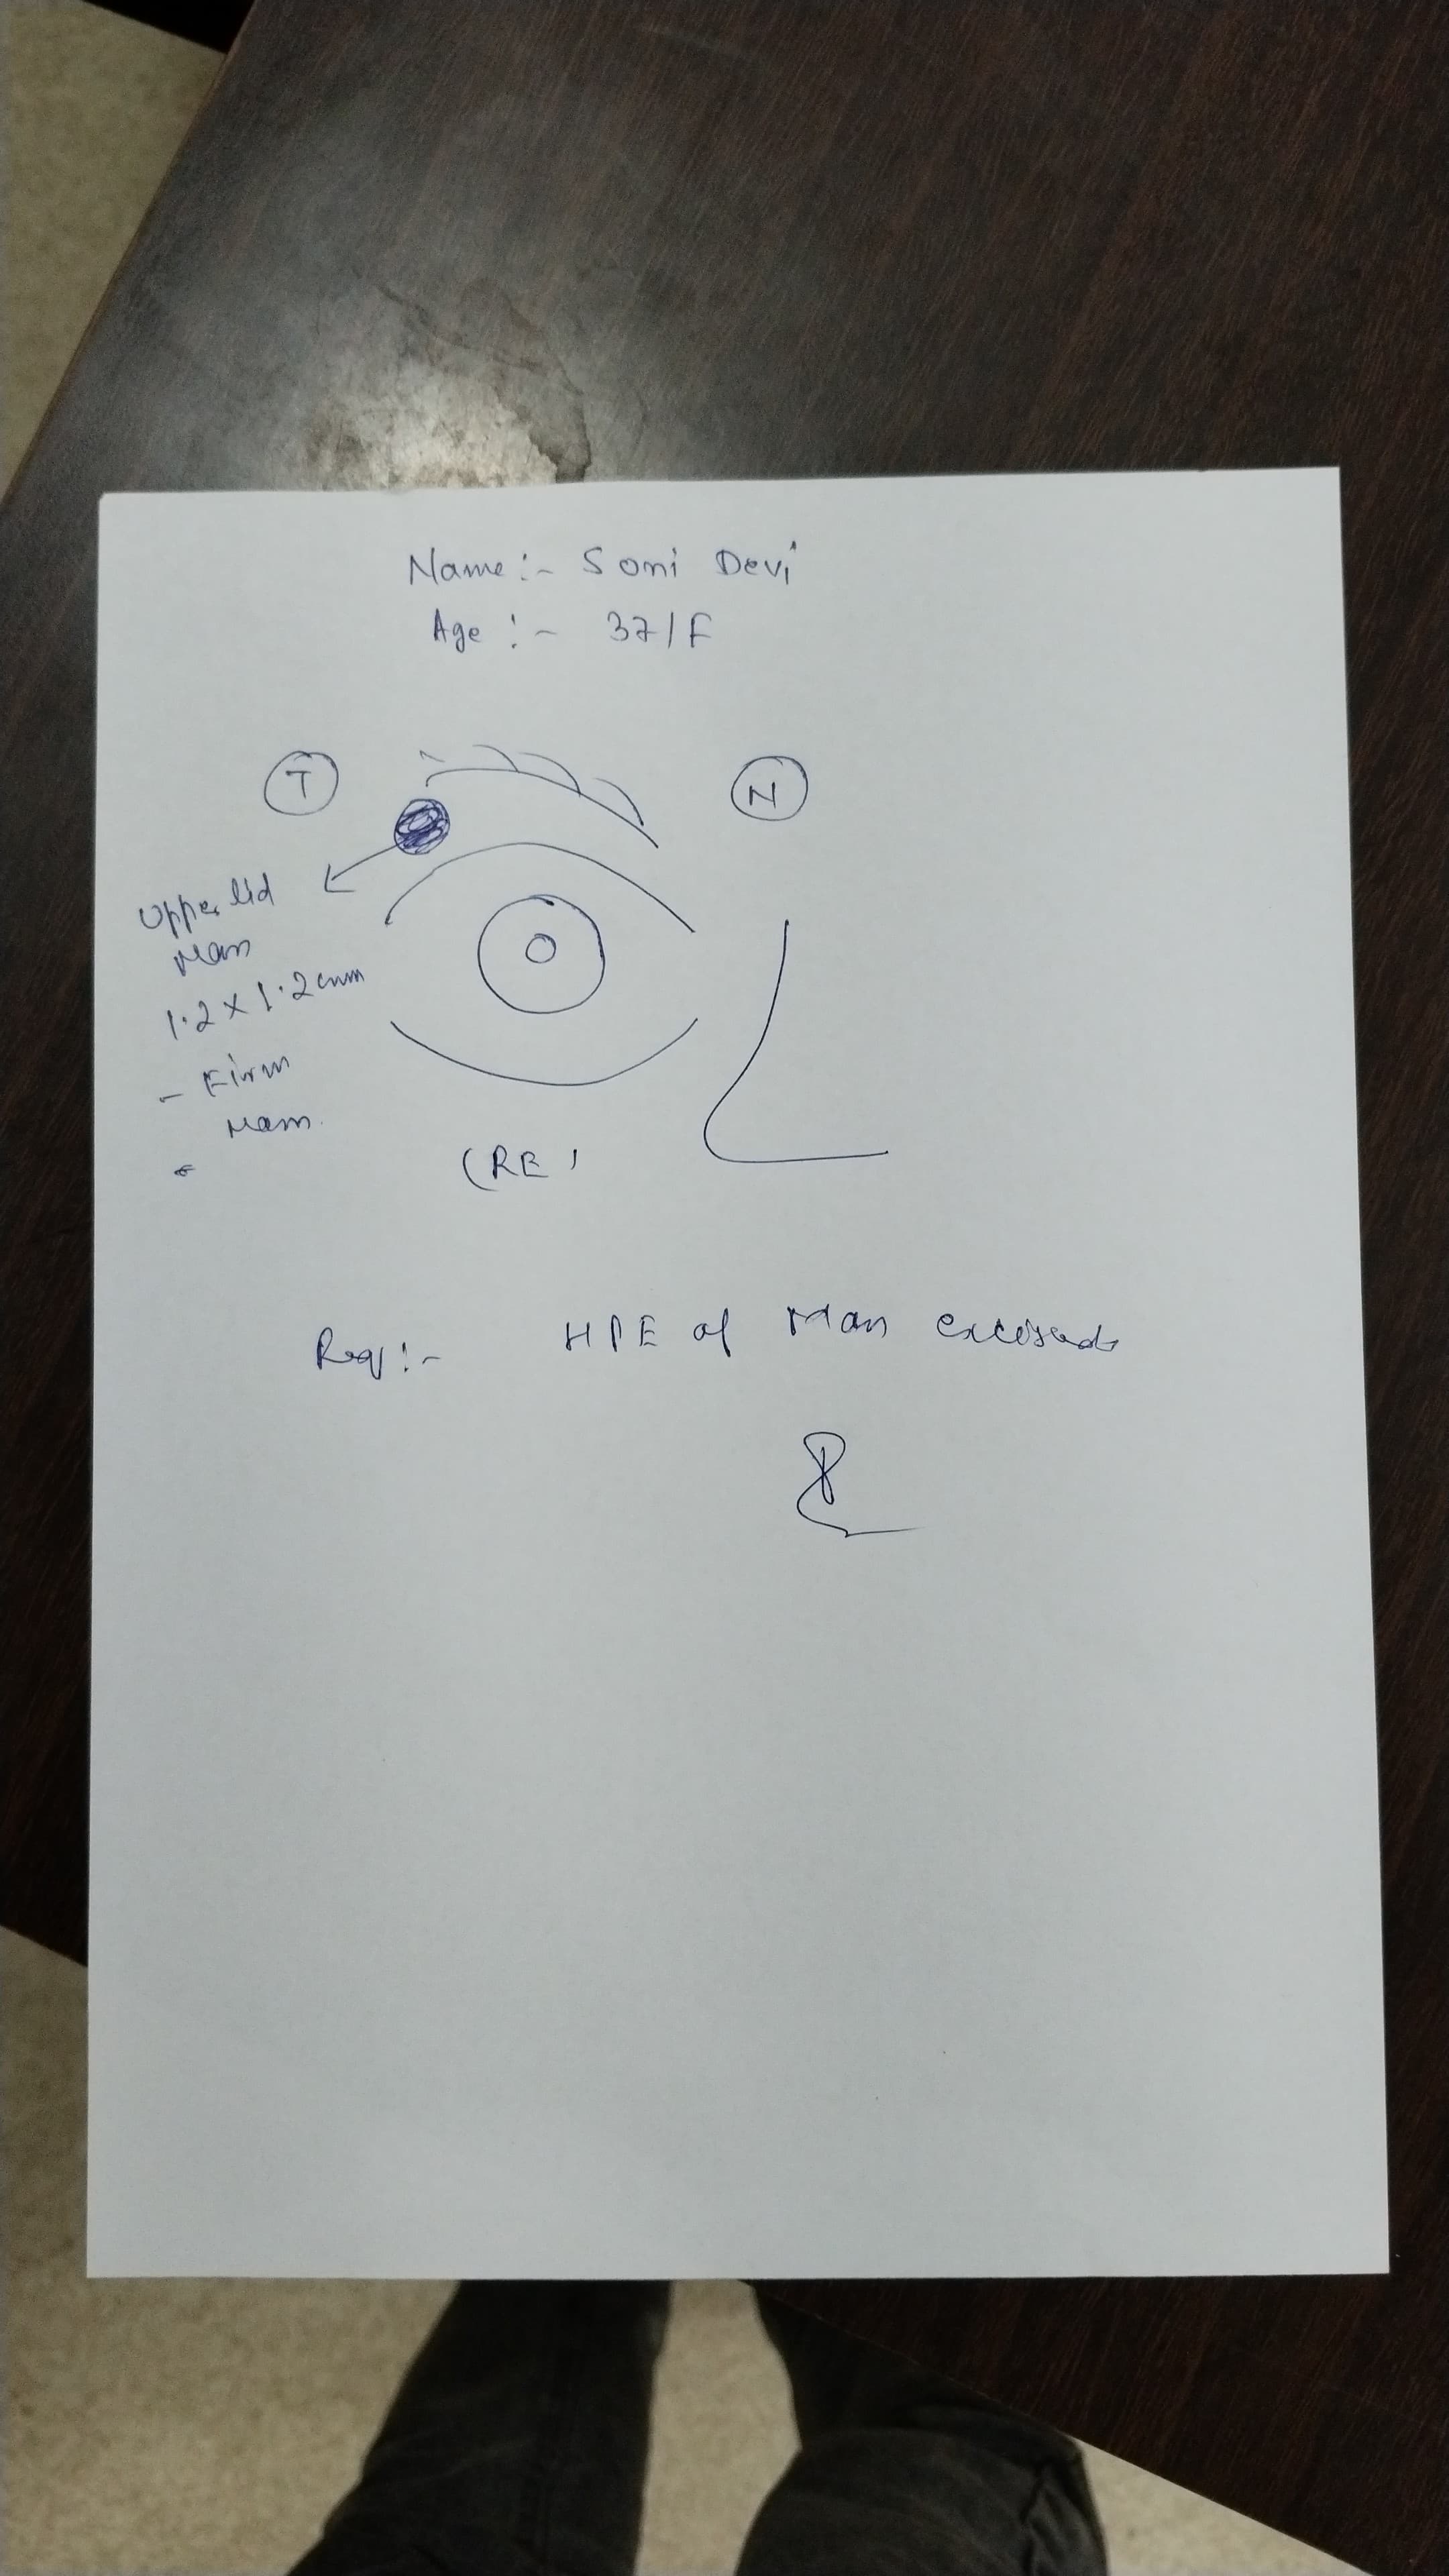 Name :- Soni Devi
Age :- 37/F
T
N
Upper lid
Mass
1.2 x 1.2 cmm
- Firm
Mass.
(RE)
Req :- HPE of Mass excised